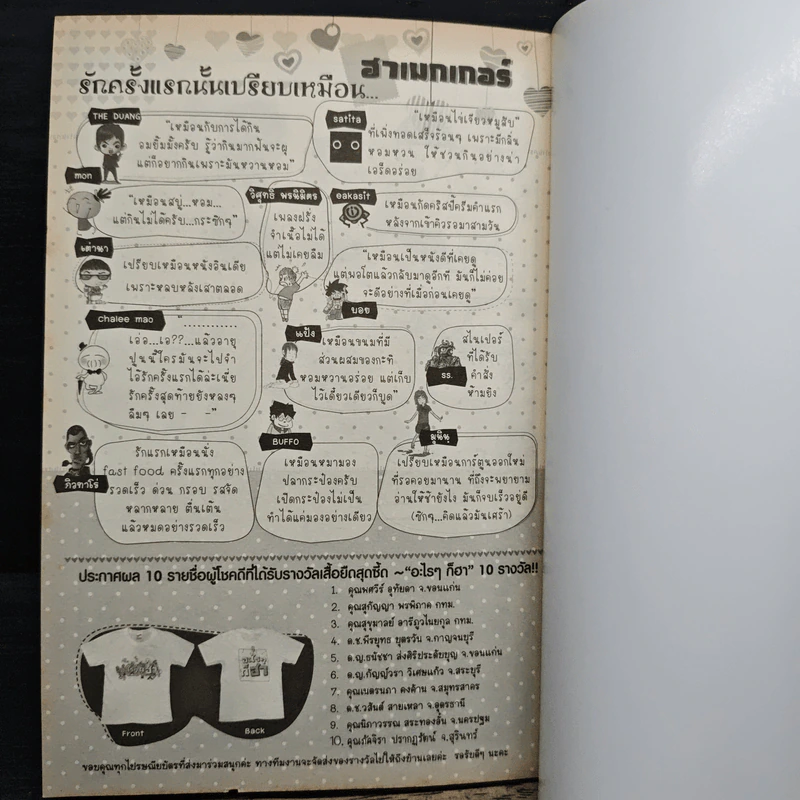 ฮาเมกเกอร์
รักครั้งแรกนั้นเปรียบเหมือน...
THE DUANG
"เหมือนกับการได้กิน
อมยิ้มมั้งครับ รู้ว่ากินมากฟันจะผุ
แต่ก็อยากกินเพราะมันหวานหอม"
satita
"เหมือนไข่เจียวหมูสับ"
ที่เพิ่งทอดเสร็จร้อนๆ เพราะมีกลิ่น
หอมหวน ให้ชวนกินอย่างน่า
เอร็ดอร่อย
mon
"เหมือนสบู่...หอม...
แต่กินไม่ได้ครับ...กระซิกๆ"
วิศุทธิ์ พรนิมิตร
เพลงฝรั่ง
จำเนื้อไม่ได้
แต่ไม่เคยลืม
eakasit
เหมือนกัดคริสปี้ครีมคำแรก
หลังจากเข้าคิวรอมาสามวัน
เต่านา
เปรียบเหมือนหนังอินเดีย
เพราะหลบหลังเสาตลอด
"เหมือนเป็นหนังดีที่เคยดู
แต่พอโตแล้วกลับมาดูอีกที มันก็ไม่ค่อย
จะดีอย่างที่เมื่อก่อนเคยดู"
บอย
chalee mao
"............
เอ่อ...เอ??...แล้วอายุ
ปูนนี้ใครมันจะไปจำ
ไอ้รักครั้งแรกได้ล่ะเนี่ย
รักครั้งสุดท้ายยังหลงๆ
ลืมๆ เลย - -"
แป้ง
"เหมือนขนมที่มี
ส่วนผสมของกะทิ
หอมหวานอร่อย แต่เก็บ
ไว้เดี๋ยวเดียวก็บูด"
สไนเปอร์
ที่ได้รับ
คำสั่ง
ห้ามยิง
ss.
ภิวทาโร่
รักแรกเหมือนนั่ง
fast food ครั้งแรกทุกอย่าง
รวดเร็ว ด่วน กรอบ รสจัด
หลากหลาย ตื่นเต้น
แล้วหมดอย่างรวดเร็ว
BUFFO
เหมือนหมามอง
ปลากระป๋องครับ
เปิดกระป๋องไม่เป็น
ทำได้แค่มองอย่างเดียว
มุนินฺ
เปรียบเหมือนการ์ตูนออกใหม่
ที่รอคอยมานาน ที่ถึงจะพยายาม
อ่านให้ช้ายังไง มันก็จบเร็วอยู่ดี
(ซิกๆ...คิดแล้วมันเศร้า)
ประกาศผล 10 รายชื่อผู้โชคดีที่ได้รับรางวัลเสื้อยืดสุดซี้ด ~"อะไรๆ ก็ฮา" 10 รางวัล!!
1. คุณพศวีร์ อุทัยดา จ.ขอนแก่น
2. คุณสุกัญญา พรพิภาค กทม.
3. คุณสุขุมาลย์ อารีภูวไนยกุล กทม.
4. ด.ช.พีรยุทธ ยุตรวัน จ.กาญจนบุรี
5. ด.ญ.ธนัชชา ส่งศิริประดับบุญ จ.ขอนแก่น
6. ด.ญ.กัญญ์วรา วิเศษแก้ว จ.สระบุรี
7. คุณเนตรนภา คงด้าน จ.สมุทรสาคร
8. ด.ช.วสันต์ สายเหลา จ.อุดรธานี
9. คุณนิภาวรรณ สระทองอั้น จ.นครปฐม
10. คุณภัลจิรา ปรากฏรัตน์ จ.สุรินทร์
Front
Back
ขอบคุณทุกไปรษณียบัตรที่ส่งมาร่วมสนุกค่ะ ทางทีมงานจะจัดส่งของรางวัลไปให้ถึงบ้านเลยค่ะ รอรับดีๆ นะคะ